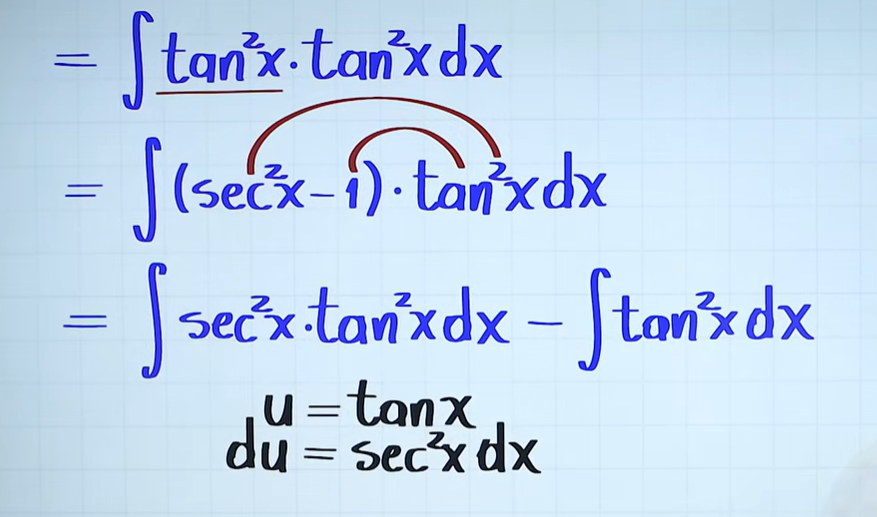 = ∫ tan²x · tan²x dx
= ∫ (sec²x − 1) · tan²x dx
= ∫ sec²x · tan²x dx − ∫ tan²x dx
u = tan x
du = sec²x dx